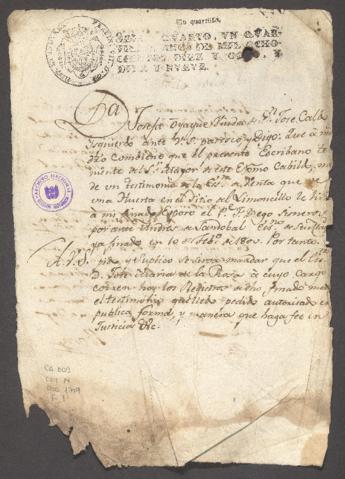 Un quartillo.
SELLO QUARTO, UN QUAR-
TILLO, AÑOS DE MIL OCHO-
CIENTOS DIEZ Y OCHO, Y
DIEZ Y NUEVE.
Da Josefa Oyaque Viuda de Dn. Jose Cald
Izquierdo ante V.S. paresco y Digo: Que a mi
dro Combiene que el presente Escribano te
niente del Sr. Mayor de este Exmo Cabildo, me
de un testimonio de la Esa. de Venta que de
una Huerta en el Sitio de Limoncillo le hizo
a mi finado Esposo el Sr. Dn Diego
por ante Andres de Sandobal Esno
ya finado en 10 de Feb. de 180 Por tanto
A.V.S. pido y Suplico se sirva mandar que el Esno
D. Jose Maria de la Rosa a cuyo cargo
corren hoy los Registros de dho finado me de
el testimonio que llebo pedido autorizado en
publica forma y manera que haga fee en
Justicia &c.
ARCHIVO NACIONAL
CA DO3